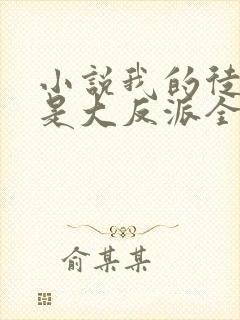 小說我的徒
是大反派全
俞某某